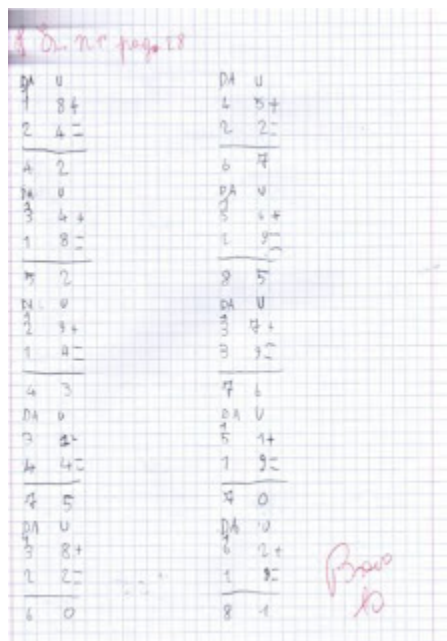 pag. 28
DA U
1 8+
2 4=
4 2
DA U
3 4+
1 8=
5 2
DA U
2 9+
1 4=
4 3
DA U
3 1+
4 4=
7 5
DA U
3 8+
2 2=
6 0
DA U
4 5+
2 2=
6 7
DA U
5 6+
2 9=
8 5
DA U
3 7+
3 9=
7 6
DA U
5 1+
1 9=
7 0
DA U
6 2+
1 9=
8 1
Bravo
10